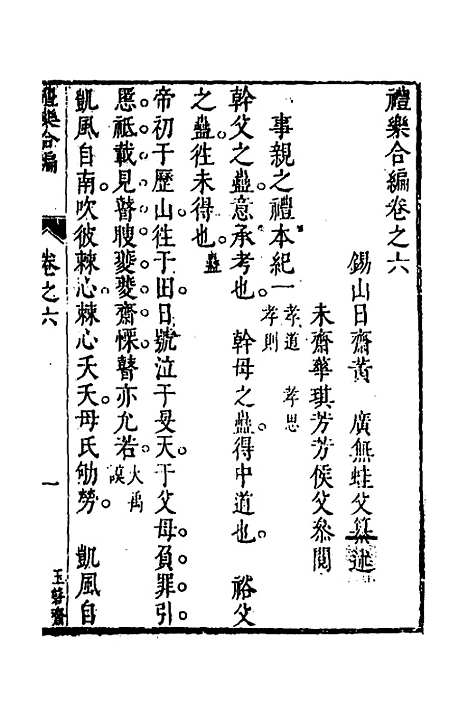 禮樂合編卷之六
錫山日齋黃　廣無蛙父纂述
未齋華琪芳芳侯父參閱
事親之禮本紀一孝道　孝思孝則
幹父之蠱意承考也　幹母之蠱得中道也。　裕父
之蠱徃未得也蠱
帝初于歷山徃于田日號泣于旻天于父母負罪引
慝祗載見瞽瞍夔夔齋慄瞽亦允若大禹謨
凱風自南吹彼棘心棘心夭夭母氏劬勞。　凱風自
禮樂合編　卷之六　一　玉磬齋